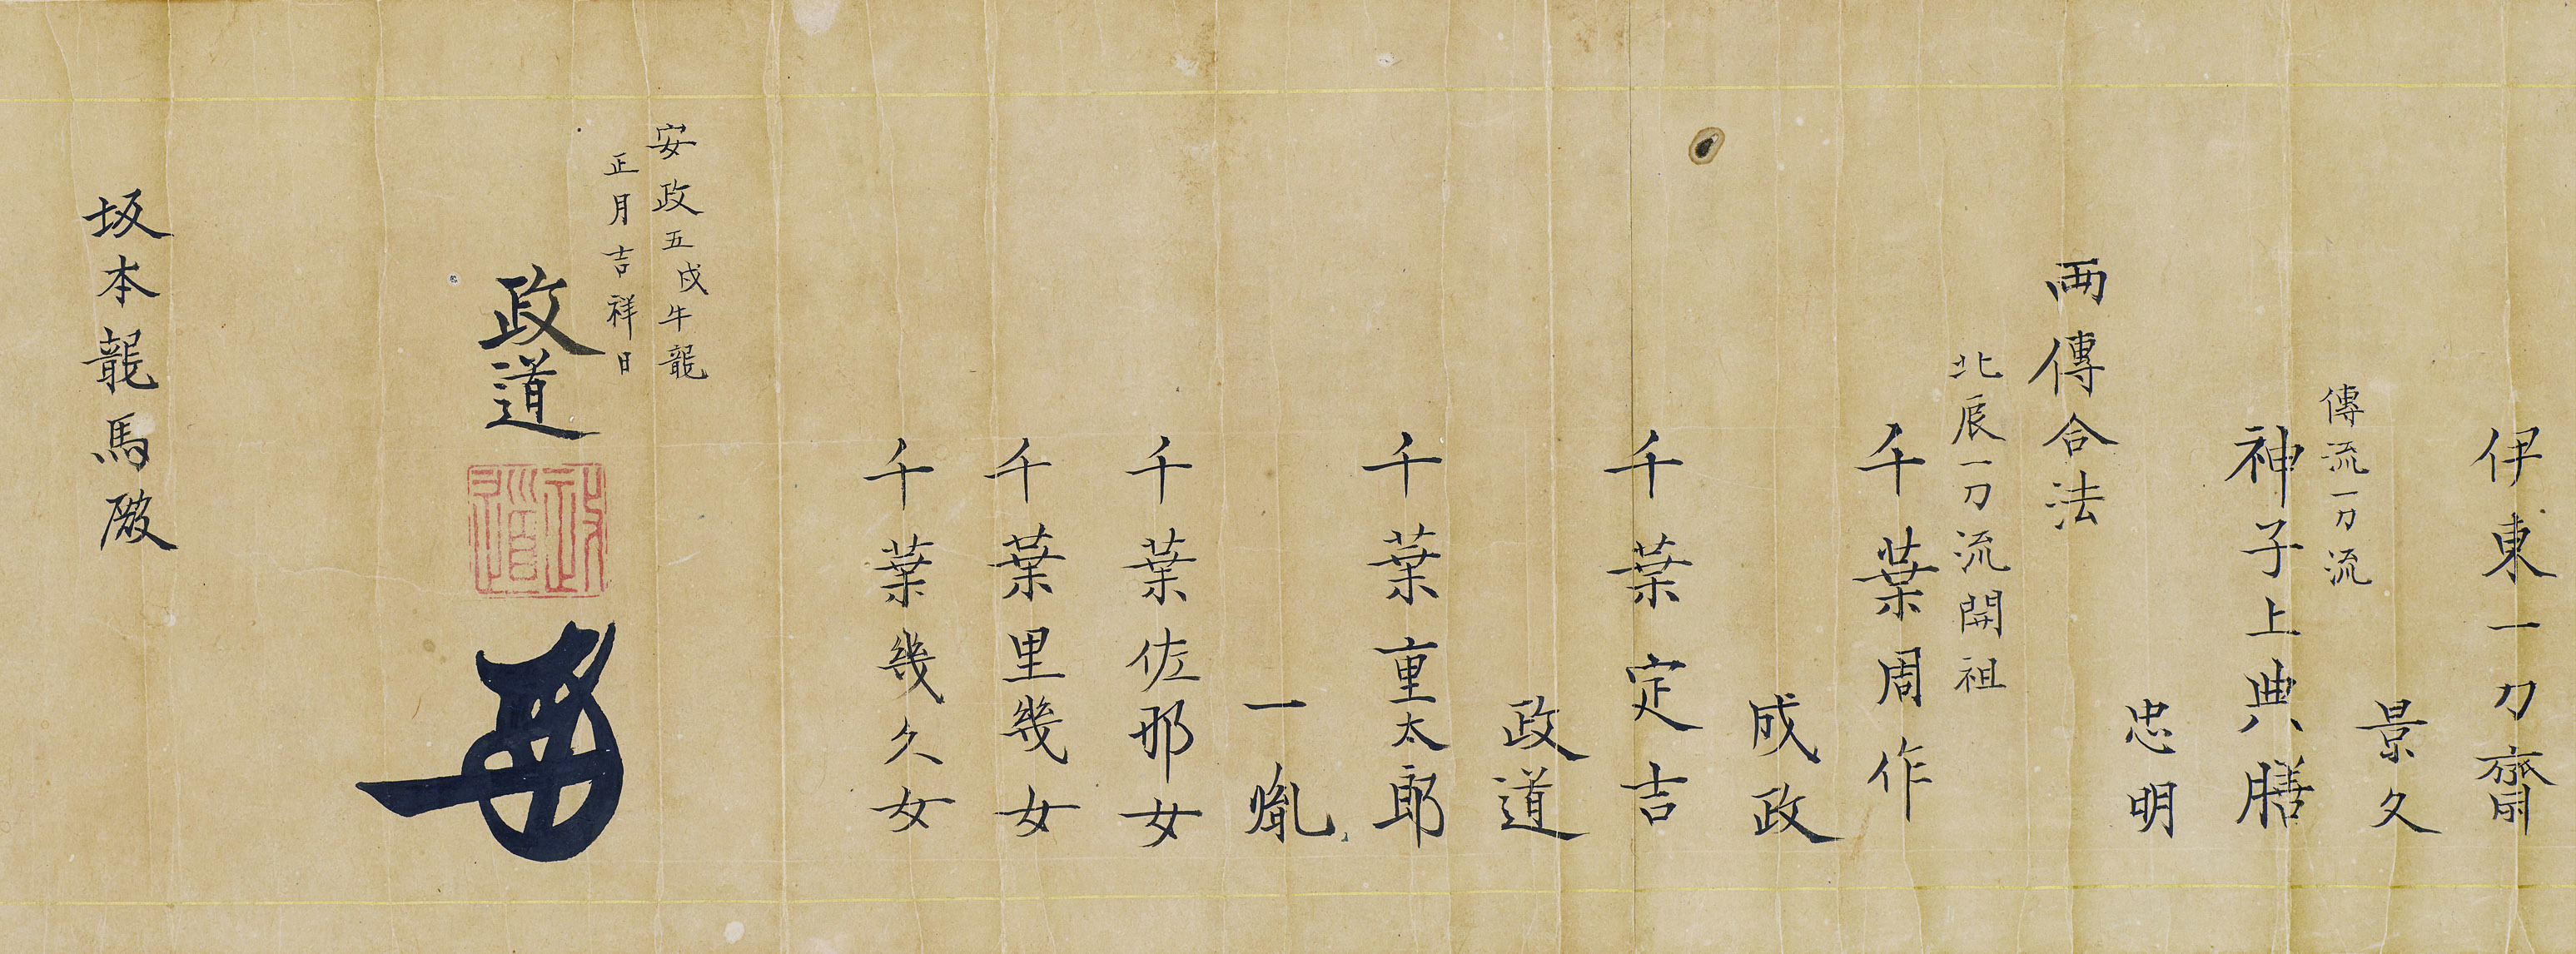 伊東一刀齋
景久
傳流一刀流
神子上典膳
忠明
両傳合法
北辰一刀流開祖
千葉周作
成政
千葉定吉
政道
千葉重太郎
一胤
千葉佐那女
千葉里幾女
千葉幾久女
安政五戊午龍
正月吉祥日
政道
政道
坂本龍馬殿